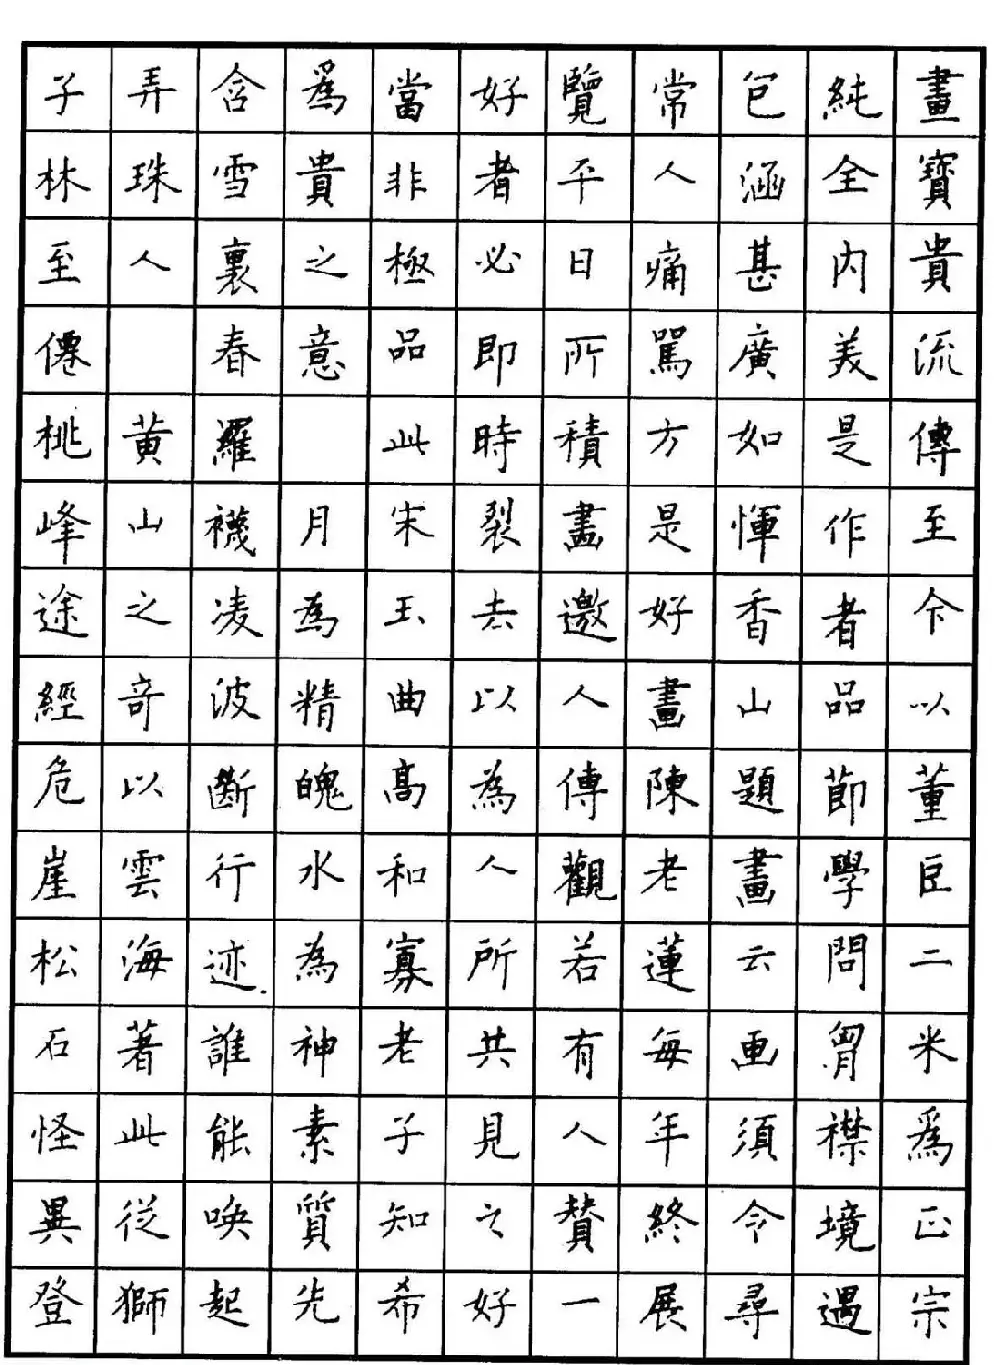 畫寶貴流傳至今以董巨二米爲正宗
純全內美是作者品節學問胷襟境遇
包涵甚廣如惲香山題畫云画須令尋
常人痛罵方是好畫陳老蓮每年終展
覽平日所積畫邀人傳觀若有人贊一
好者必即時裂去以為人所共見之好
當非極品此宋玉曲高和寡老子知希
為貴之意 月為精魄水為神素質先
含雪裏春意羅襪凌波斷行迹誰能喚起
弄珠人 黄山之奇以雲海著此從獅
子林至僊桃峰途經危崖松石怪異登